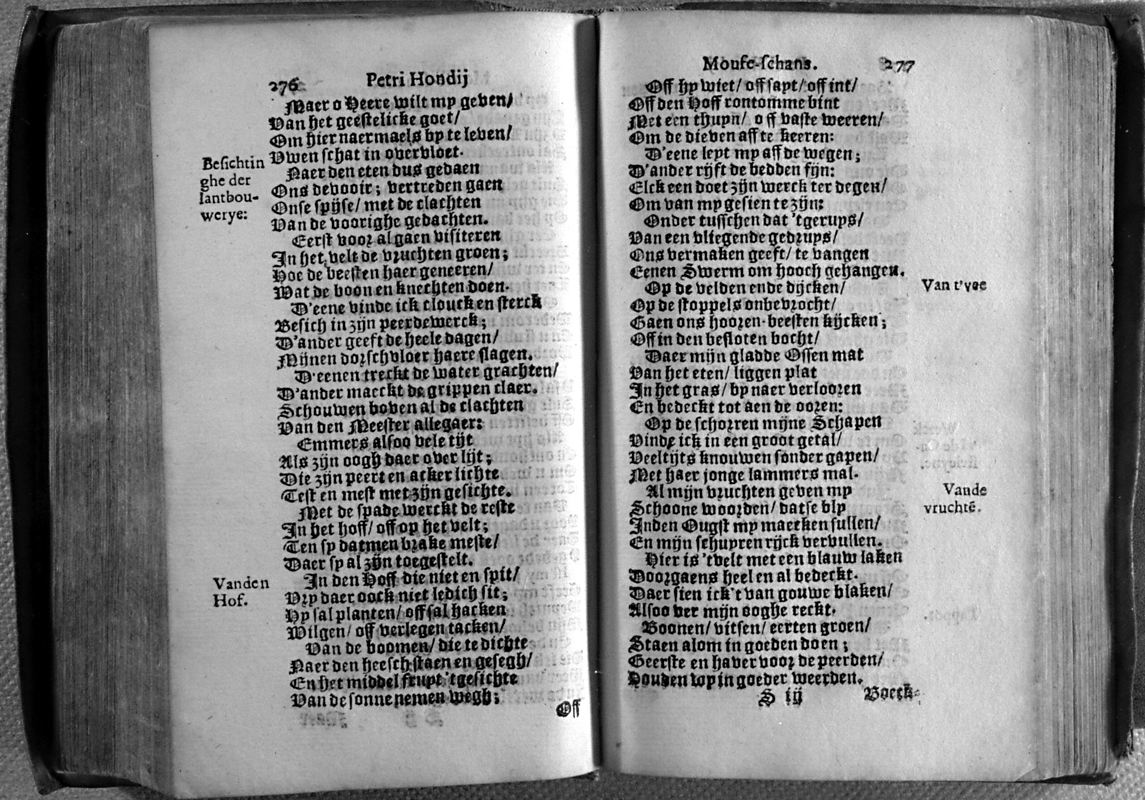 276 Petri Hondij
Maer o Heere wilt my geven/
Van het geestelicke goet/
Om hier naermaels by te leven/
Uwen schat in overvloet.
Besichtin
ghe der
lantbou-
werye:
Naer den eten dus gedaen
Ons devooir; vertreden gaen
Onse spijse/ met de clachten
Van de voorighe gedachten.
Eerst voor al gaen visiteren
In het velt de vruchten groen;
Hoe de beesten haer geneeren/
Wat de boon en knechten doen.
D'eene vinde ick clouck en sterck
Besich in zijn peerdewerck;
D'ander geeft de heele dagen/
Mijnen dorschvloer haere slagen.
D'eenen treckt de water grachten/
D'ander maeckt de grippen claer.
Schouwen boven al de clachten
Van den Meester allegaer:
Emmers alsoo vele tijt
Als zijn oogh daer over lijt;
Die zijn peert en acker lichte
Test en mest met zijn gesichte.
Met de spade werckt de reste
In het hoff/ off op het velt;
Ten sy datmen brake meste/
Daer sy al zijn toegestelt.
Vanden
Hof.
In den Hoff die niet en spit/
Vry daer oock niet ledich sit;
Hy sal planten/ off sal hacken
Wilgen/ off verlegen tacken/
Van de boomen/ die te dichte
Naer den heesch staen en gesegh/
En het middel frupt 'tgesichte
Van de sonne nemen wegh;
Off
Mouse-schans. 277
Off hy wiet/ off sapt/ off int/
Off den Hoff rontomme bint
Met een thuyn/ off vaste weeren/
Om de dieven aff te keeren:
D'eene leyt my aff de wegen;
D'ander rijft de bedden fijn:
Elck een doet zijn werck ter degen/
Om van my gesien te zijn:
Onder tusschen dat 'tgeruys/
Van een vliegende gedruys/
Ons vermaken geeft/ te vangen
Eenen Swerm om hooch gehangen.
Van t'vee
Op de velden ende dijcken/
Op de stoppels onbevrocht/
Gaen ons hooren-beesten kijcken;
Off in den besloten bocht/
Daer mijn gladde Ossen mat
Van het eten/ liggen plat
In het gras/ by naer verlooren
En bedeckt tot aen de ooren:
Op de schorren mijne Schapen
Vinde ick in een groot getal/
Veeltijts knouwen sonder gapen/
Met haer jonge lammers mal.
Vande
vruchtē.
Al mijn vruchten geven my
Schoone woorden/ datse bly
Inden Ougst my maecken sullen/
En mijn schuyren rijck vervullen.
Hier is 'tvelt met een blauw laken
Doorgaens heel en al bedeckt.
Daer sien ick't van gouwe blaken/
Alsoo ver mijn ooghe reckt.
Boonen/ vitsen/ eerten groen/
Staen alom in goeden doen;
Geerste en haver voor de peerden/
Houden top in goeder weerden.
S iij Boeck-